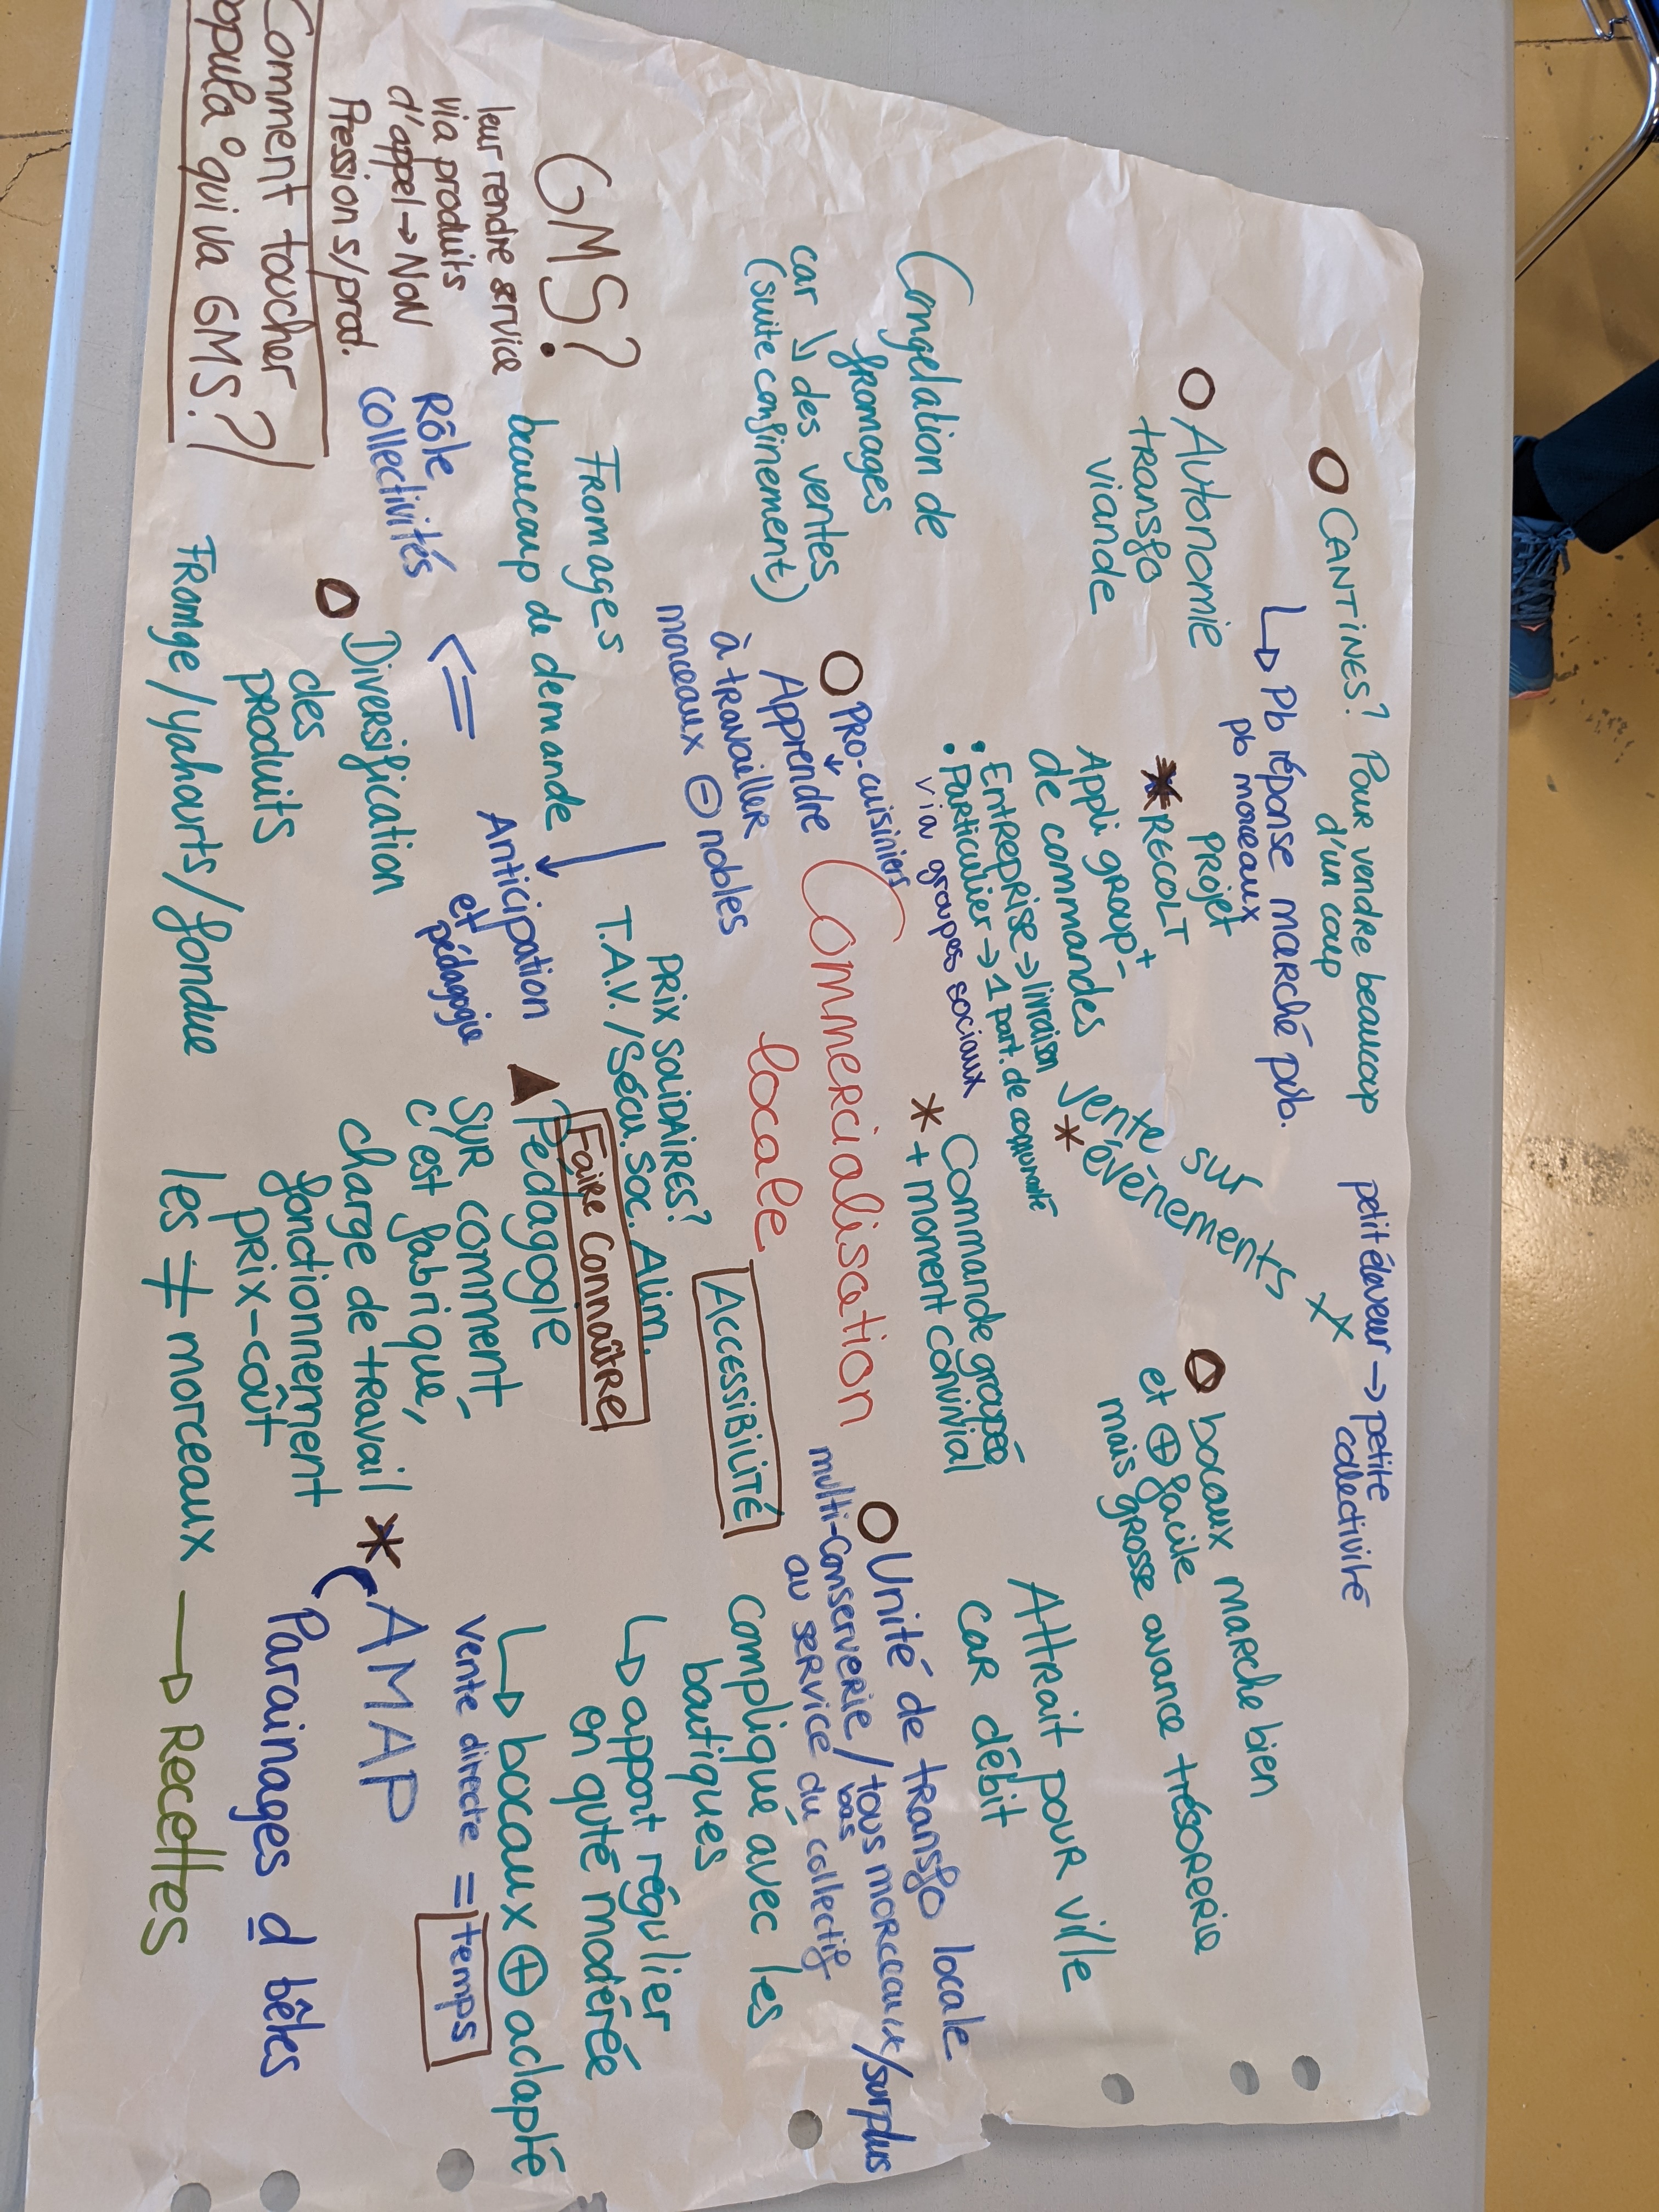 CANTINES? Pour vendre beaucoup
d'un coup
↳ Pb réponse marché pub.
pb morceaux
petit éleveur → petite
collectivité
Autonomie
transfo
viande
* PROJET
RECOLT
Appli group+-
de commandes
• Entreprise → livraison
• Particulier → 1 part. de communauté
via groupes sociaux
Vente sur
* évènements
bocaux marche bien
et ⊕ facile
mais grosse avance trésorerie
Attrait pour ville
car débit
Congélation de
fromages
car ↘ des ventes
(suite confinement)
PRO-cuisiniers
Apprendre
à travailler
morceaux ⊖ nobles
Commande groupée
* + moment convivial
Commercialisation
locale
ACCESSIBILITÉ
Unité de transfo locale
multi-conserverie / tous morceaux/surplus
bas
au service du collectif
Compliqué avec les
boutiques
↳ apport régulier
en quté modérée
↳ bocaux ⊕ adapté
vente directe = temps
GMS?
leur rendre service
via produits
d'appel → NON
Pression s/prod.
Comment toucher
popula° qui va GMS?
Fromages
beaucoup de demande
Rôle
collectivités
⇐ Anticipation
et
pédagogie
PRIX SOLIDAIRES?
T.A.V./Sécu. Soc. Alim.
FAIRE CONNAÎTRE
Pédagogie
SUR COMMENT
c'est fabriqué,
charge de travail
fonctionnement
prix-coût
les ≠ morceaux → Recettes
Diversification
des
produits
Fromge/yahourts/fondue
* AMAP
Parainages d bêtes